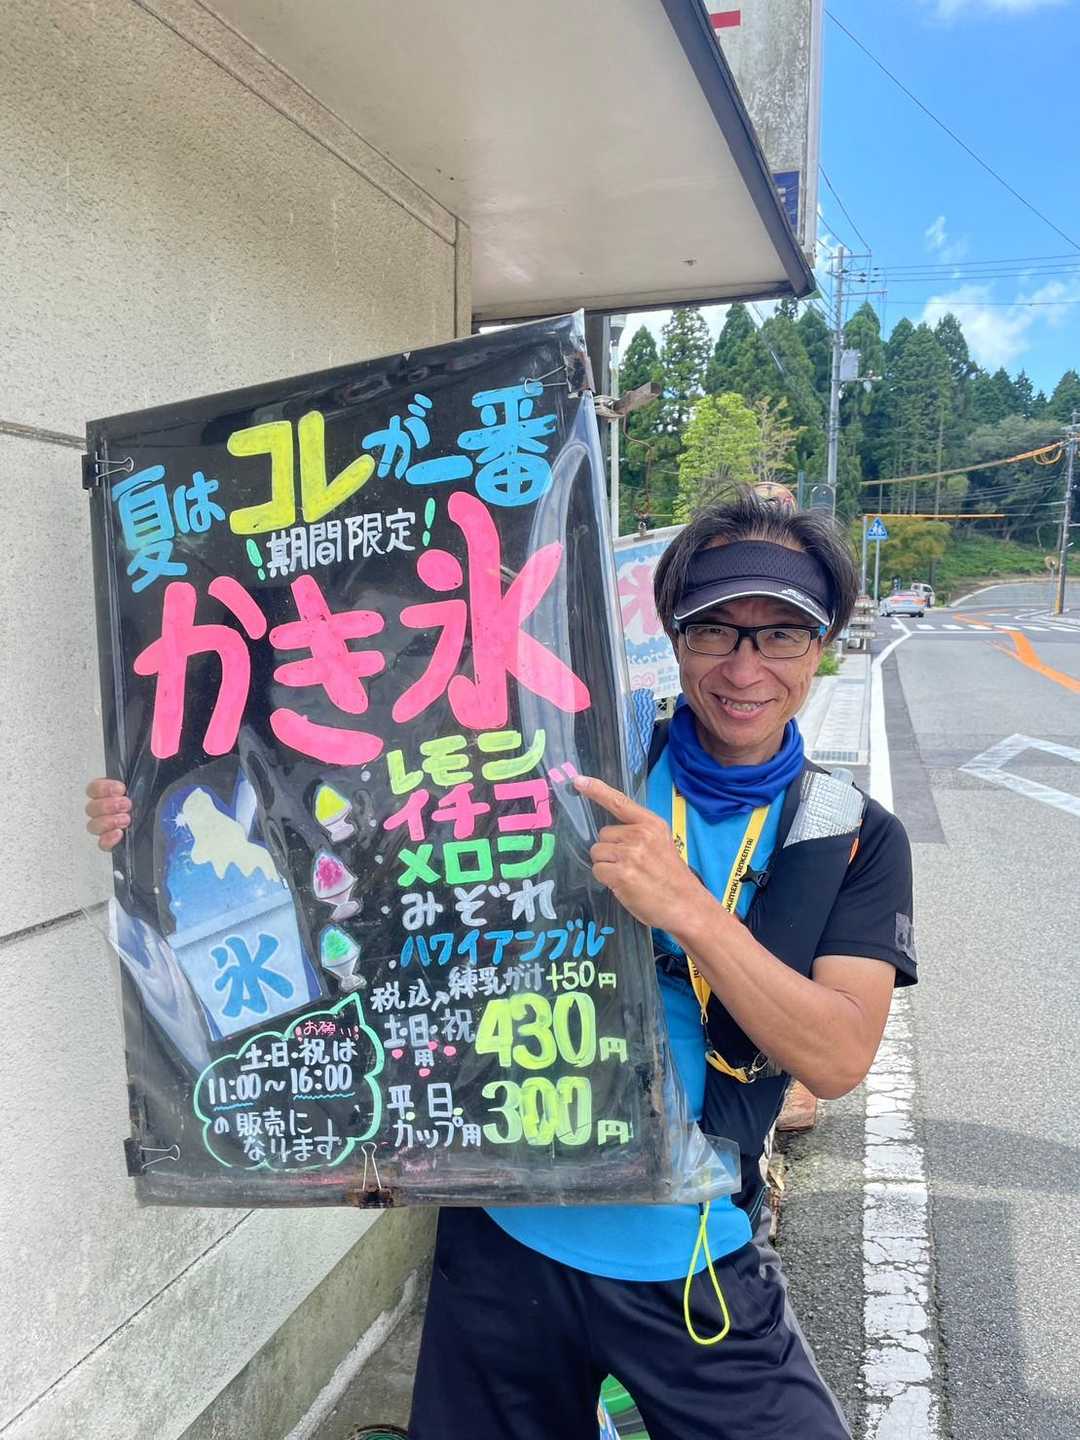 夏はコレが一番
!期間限定!
かき氷
レモン
イチゴ
メロン
みぞれ
ハワイアンブルー
練乳がけ+50円
税込
土日・祝用 430円
平日カップ用 300円
氷
お願い
土・日・祝は
11:00～16:00
の販売に
なります